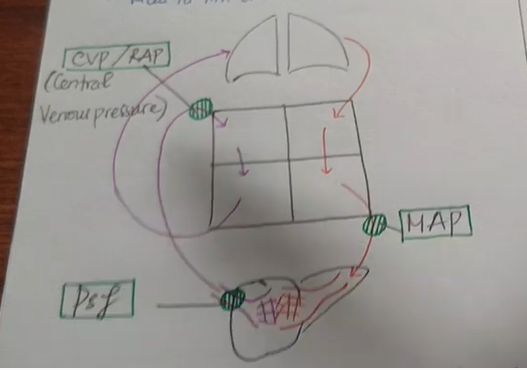 CVP/RAP
(Central
Venous pressure)
MAP
Psf